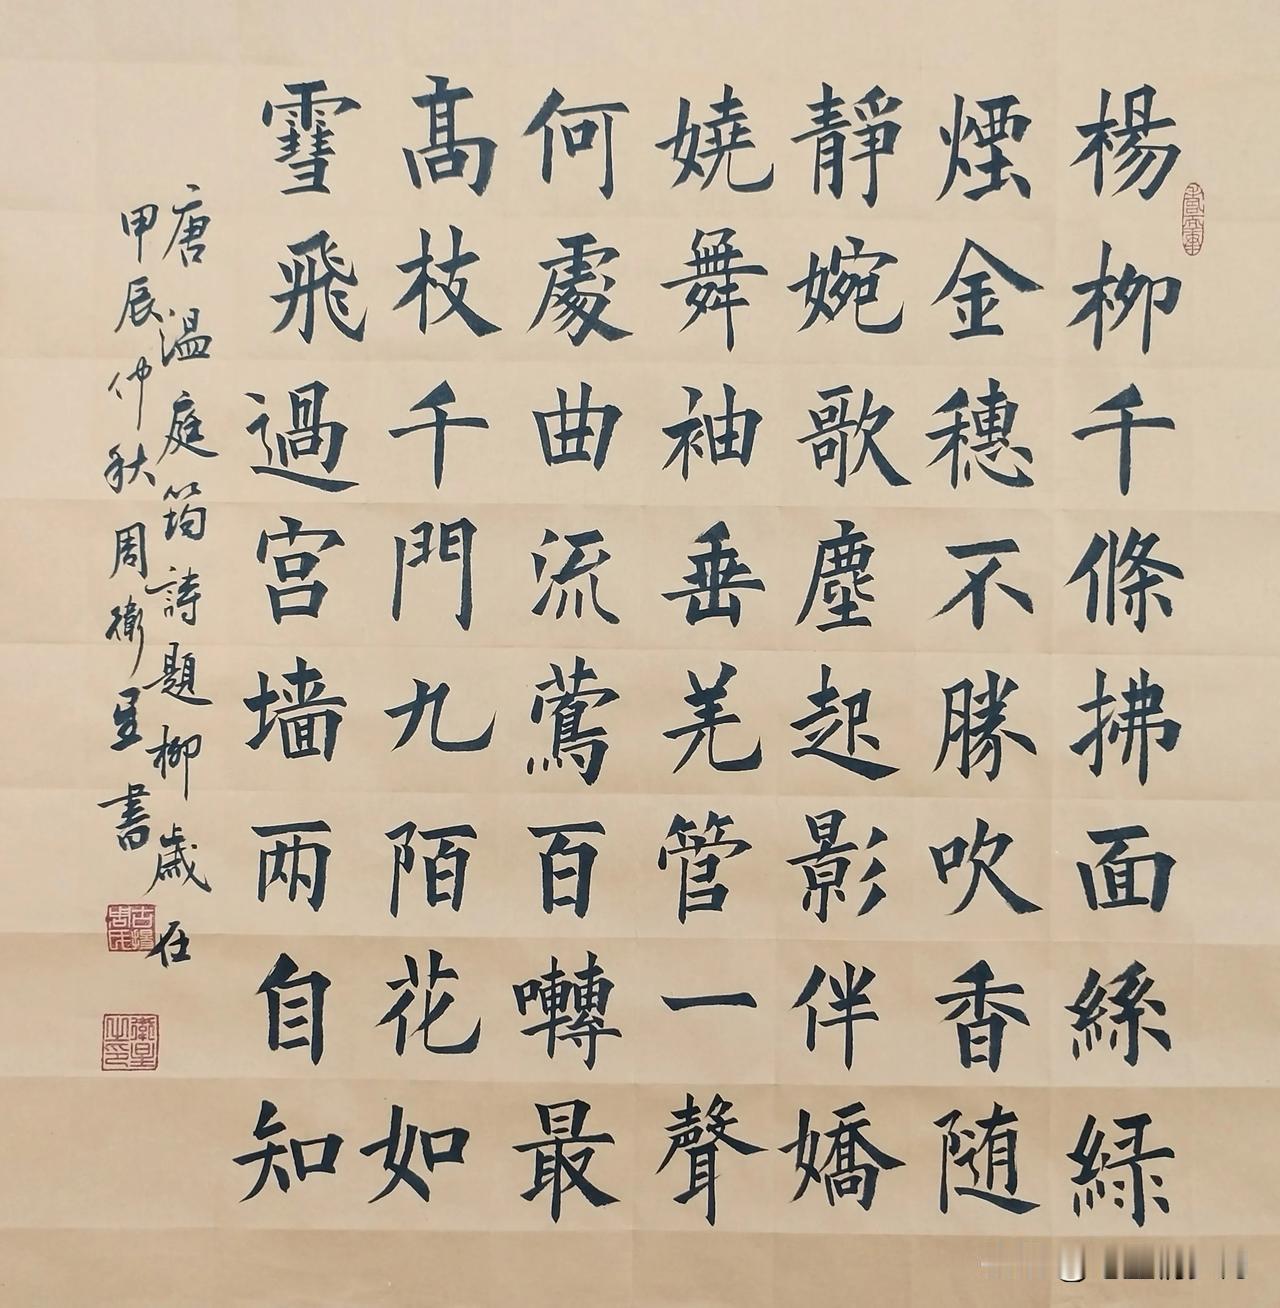 楊柳千條拂面絲綠
煙金穗不勝吹香随
靜婉歌塵起影伴嬌
嬈舞袖垂羌管一聲
何處曲流鶯百囀最
髙枝千門九陌花如
雪飛過宫墙兩自知
唐温庭筠詩題柳歲在
甲辰仲秋周衛星書